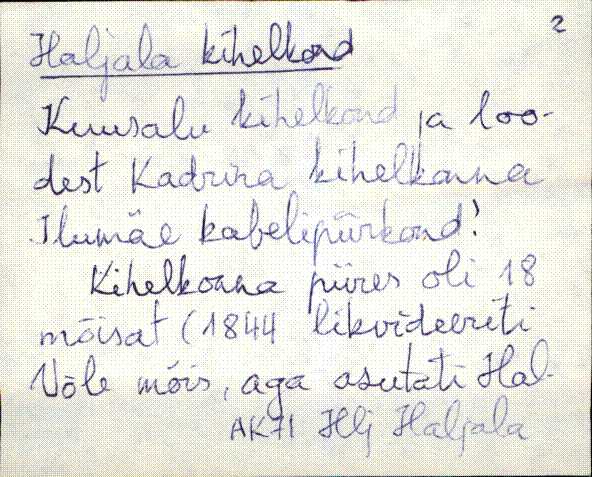 2
Haljala kihelkond
Kuusalu kihelkond ja loo-
dest Kadrina kihelkonna
Ilumäe kabelipiirkond!
Kihelkonna piires oli 18
mõisat (1844 likvideeriti
Võle mõis, aga asutati Hal-
AK71 Hlj Haljala